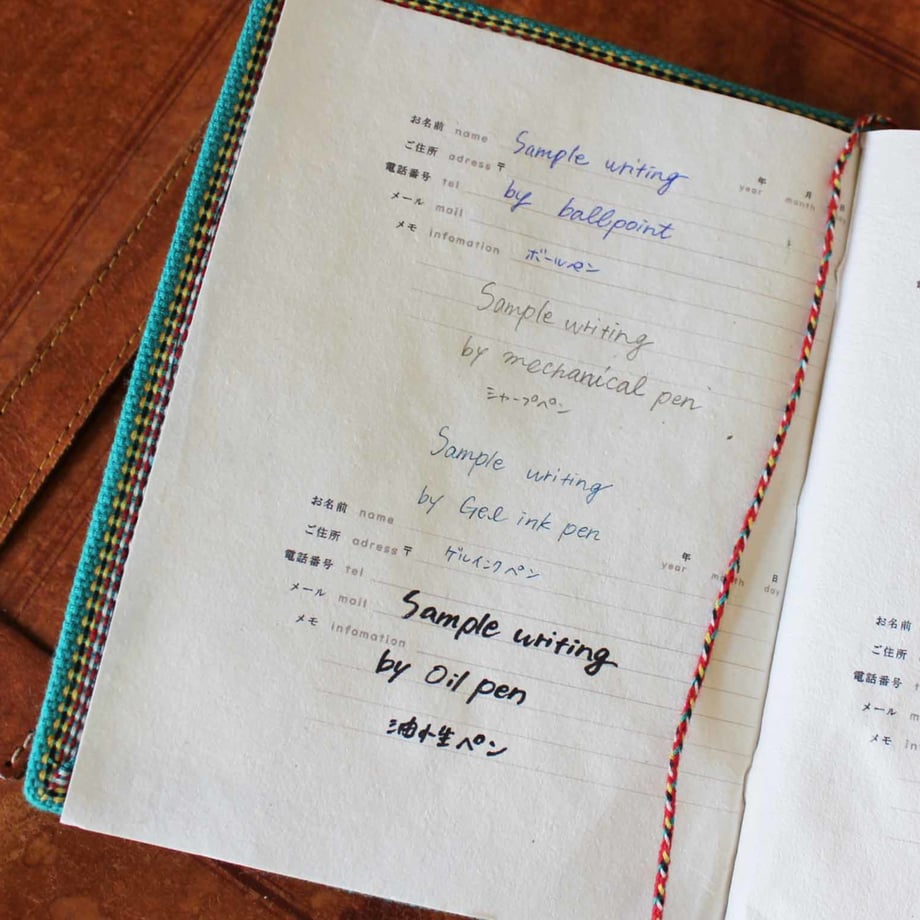 お名前 name Sample writing 年 year 月 month 日 day
ご住所 adress 〒
電話番号 tel by ballpoint
メール mail
メモ infomation ボールペン
Sample writing
by mechanical pen
シャープペン
Sample writing
by Gel ink pen
お名前 name 年 year 月 month 日 day
ご住所 adress 〒 ゲルインクペン
電話番号 tel
メール mail Sample writing
メモ infomation
by Oil pen
油性ペン
お名前
ご住所
電話番号
メール
メモ